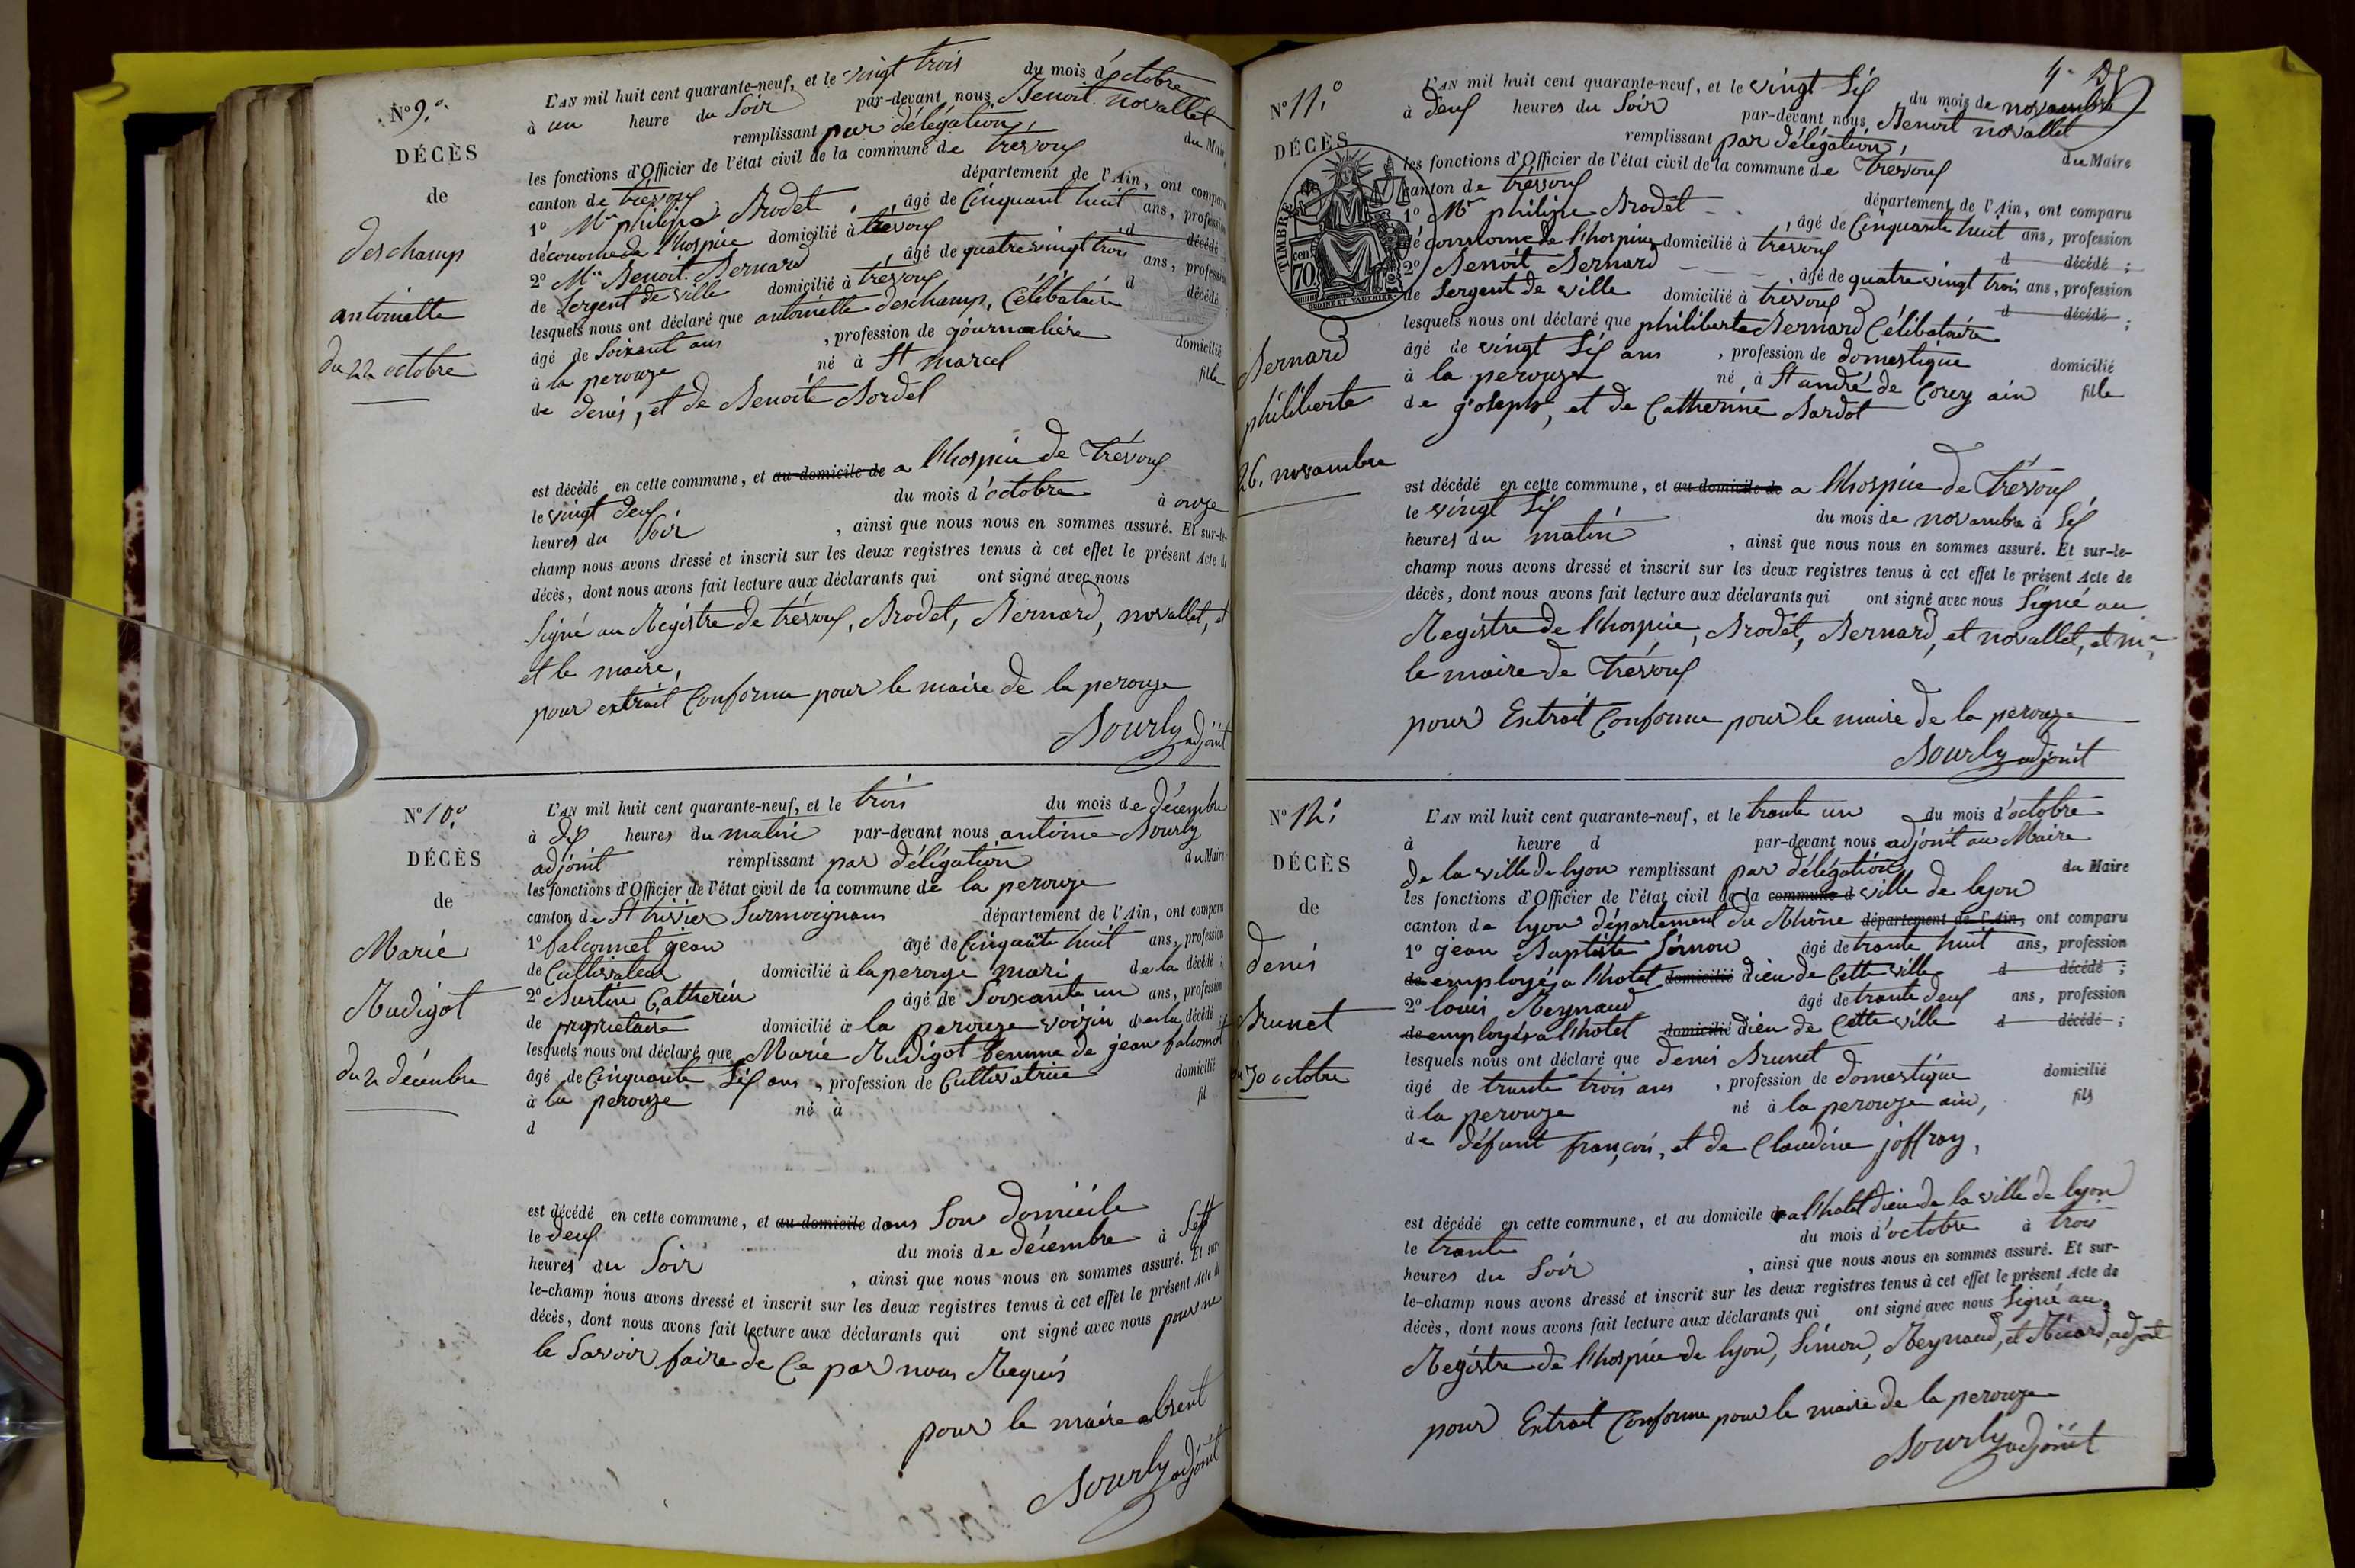 N° 9.°
DÉCÈS
de
deschamp
antoinette
du 22 octobre
L'AN mil huit cent quarante-neuf, et le vingt trois du mois d'octobre
à un heure du Soir par-devant nous Benoit novallet
remplissant par délégation, du Maire
les fonctions d'Officier de l'état civil de la commune de trévoux
canton de trévoux département de l'Ain, ont comparu
1° Mr philipe Brodet, âgé de Cinquant huit ans, profession
d'économe de l'hospice domicilié à trévoux d décédé
2° Mr Benoit Bernard, âgé de quatre vingt trois ans, profession
de Sergent de ville domicilié à trévoux d décédé
lesquels nous ont déclaré que antoinette deschamp, Célibataire
âgé de Soixant ans, profession de journalière domicilié
à la perouze né à St marcel fille
de denis, et de Benoite Bordel
est décédé en cette commune, et au domicile de a l'hospice de Trévoux
le vingt deux du mois d'octobre à onze
heures du Soir, ainsi que nous nous en sommes assuré. Et sur-le-
champ nous avons dressé et inscrit sur les deux registres tenus à cet effet le présent Acte de
décès, dont nous avons fait lecture aux déclarants qui ont signé avec nous
Signé au Registre de trévoux, Brodet, Bernard, novallet, et
et le maire,
pour extrait Conforme pour le maire de la perouze
Bourly adjoint
N° 10.°
DÉCÈS
de
Marie
Rudigot
du 2 décembre
L'AN mil huit cent quarante-neuf, et le trois du mois de décembre
à dix heures du matin par-devant nous antoine Bourly
adjoint remplissant par délégation du Maire
les fonctions d'Officier de l'état civil de la commune de la perouze
canton de St trivier Surmoignans département de l'Ain, ont comparu
1° falconnet jean âgé de Cinquante huit ans, profession
de Cultivateur domicilié à la perouze mari de la décédé ;
2° Burtin Catherin âgé de Soixante un ans, profession
de propriétaire domicilié à la perouze voizin de la décédé ;
lesquels nous ont déclaré que Marie Rudigot femme de jean falconnet
âgé de Cinquante Six ans, profession de Cultivatrice domicilié
à la perouze né à fil
d
est décédé en cette commune, et au domicile dans Son domicile
le deux du mois de décembre à Sept
heures du Soir, ainsi que nous nous en sommes assuré. Et sur-
le-champ nous avons dressé et inscrit sur les deux registres tenus à cet effet le présent Acte de
décès, dont nous avons fait lecture aux déclarants qui ont signé avec nous pour ne
le Savoir faire de Ce par nous Requis
pour le maire absent
Bourly adjoint
N° 11.°
DÉCÈS
TIMBRE
cen. 70
OUDINE ET VAUTHIER
Bernard
philiberte
26. novambre
L'AN mil huit cent quarante-neuf, et le vingt Six du mois de novambre
à deux heures du Soir par-devant nous Benoit novallet
remplissant par délégation, du Maire
les fonctions d'Officier de l'état civil de la commune de trevoux
canton de trévoux département de l'Ain, ont comparu
1° Mr philipe Brodet, âgé de Cinquante huit ans, profession
d'économe de l'hospice domicilié à trevoux d décédé ;
2° Benoit Bernard, âgé de quatre vingt trois ans, profession
de Sergent de ville domicilié à trévoux d décédé ;
lesquels nous ont déclaré que philiberte Bernard Célibataire
âgé de vingt Six ans, profession de domestique domicilié
à la perouze né à St andré de Corcy ain fille
de joseph, et de Catherine Bardot
est décédé en cette commune, et au domicile de a l'hospice de Trévoux
le vingt Six du mois de novambre à Six
heures du matin, ainsi que nous nous en sommes assuré. Et sur-le-
champ nous avons dressé et inscrit sur les deux registres tenus à cet effet le présent Acte de
décès, dont nous avons fait lecture aux déclarants qui ont signé avec nous Signé au
Registre de l'hospice, Brodet, Bernard, et novallet, et mr
le maire de Trévoux
pour Extrait Conforme pour le maire de la perouze
Bourly adjoint
N° 12.°
DÉCÈS
de
denis
Brunet
du 30 octobre
L'AN mil huit cent quarante-neuf, et le trante un du mois d'octobre
à heure d par-devant nous adjoint au Maire
de la ville de lyon remplissant par délégation du Maire
les fonctions d'Officier de l'état civil de la commune d ville de lyon
canton de lyon département du Rhône département de l'Ain, ont comparu
1° jean Baptiste Simon âgé de trante huit ans, profession
de employé a l'hotel domicilié dieu de Cette ville d décédé ;
2° louis Reynaud âgé de trante deux ans, profession
de employé a l'hotel domicilié dieu de Cette ville d décédé ;
lesquels nous ont déclaré que denis Brunet
âgé de trante trois ans, profession de domestique domicilié
à la perouze né à la perouze ain, fils
de défunt françois, et de Claudine joffray,
est décédé en cette commune, et au domicile d a l'hotel dieu de la ville de lyon
le trante du mois d'octobre à trois
heures du Soir, ainsi que nous nous en sommes assuré. Et sur-
le-champ nous avons dressé et inscrit sur les deux registres tenus à cet effet le présent Acte de
décès, dont nous avons fait lecture aux déclarants qui ont signé avec nous Signé au
Registre de l'hospice de lyon, Simon, Reynaud, et Ricard, adjoint
pour Extrait Conforme pour le maire de la perouze
Bourly adjoint